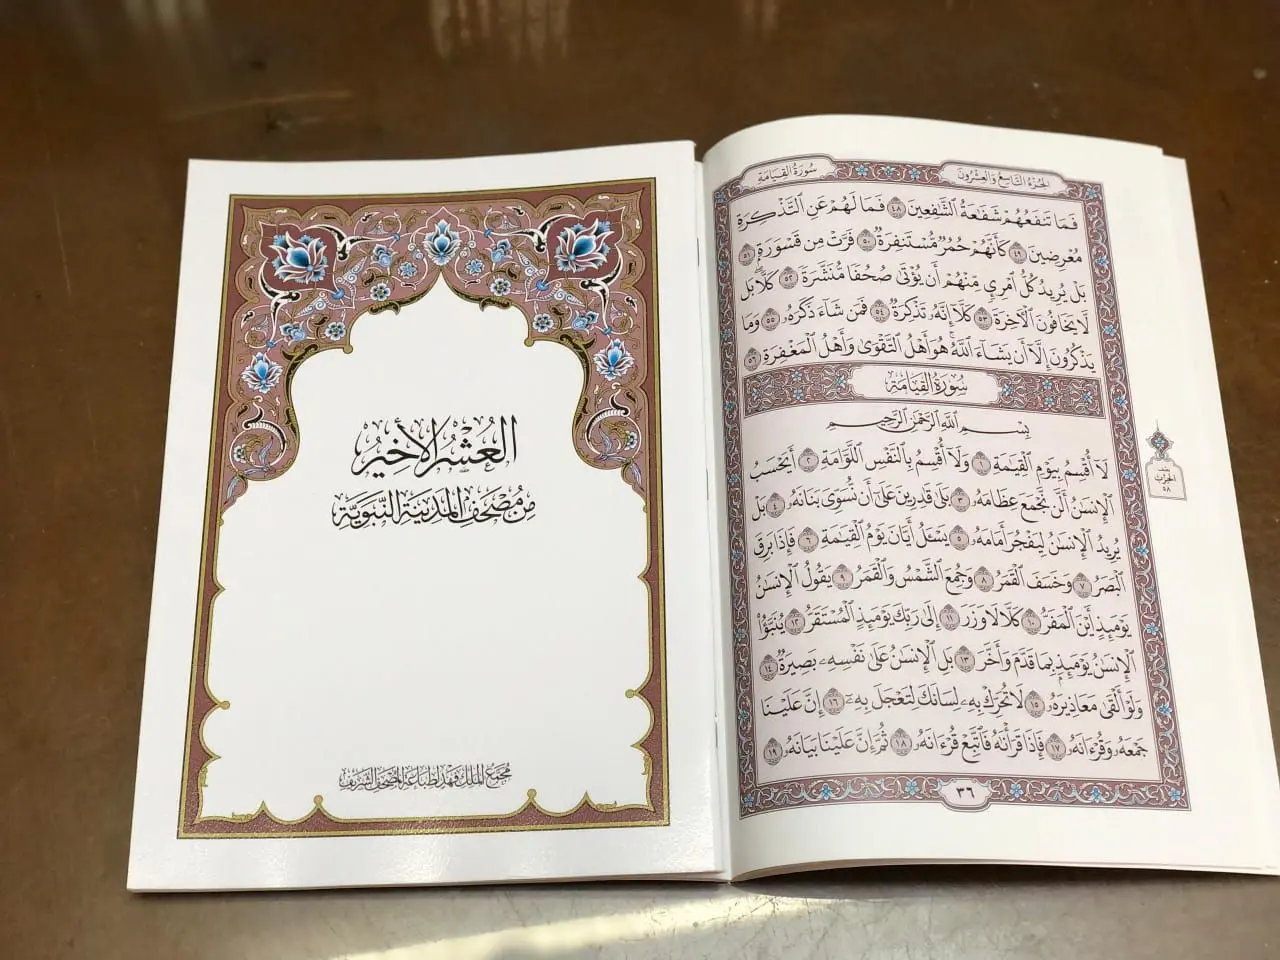 العشر الأخير
من مصحف المدينة النبوية
مجمع الملك فهد لطباعة المصحف الشريف
الجزء التاسع والعشرون
سورة القيامة
فَمَا تَنفَعُهُمْ شَفَٰعَةُ ٱلشَّٰفِعِينَ ٤٨ فَمَا لَهُمْ عَنِ ٱلتَّذْكِرَةِ
مُعْرِضِينَ ٤٩ كَأَنَّهُمْ حُمُرٌ مُّسْتَنفِرَةٌ ٥٠ فَرَّتْ مِن قَسْوَرَةٍ ٥١
بَلْ يُرِيدُ كُلُّ ٱمْرِئٍ مِّنْهُمْ أَن يُؤْتَىٰ صُحُفًا مُّنَشَّرَةً ٥٢ كَلَّا بَل
لَّا يَخَافُونَ ٱلْءَاخِرَةَ ٥٣ كَلَّآ إِنَّهُۥ تَذْكِرَةٌ ٥٤ فَمَن شَآءَ ذَكَرَهُۥ ٥٥ وَمَا
يَذْكُرُونَ إِلَّآ أَن يَشَآءَ ٱللَّهُ هُوَ أَهْلُ ٱلتَّقْوَىٰ وَأَهْلُ ٱلْمَغْفِرَةِ ٥٦
سُورَةُ القِيَامَةِ
بِسْمِ ٱللَّهِ ٱلرَّحْمَٰنِ ٱلرَّحِيمِ
لَآ أُقْسِمُ بِيَوْمِ ٱلْقِيَٰمَةِ ١ وَلَآ أُقْسِمُ بِٱلنَّفْسِ ٱللَّوَّامَةِ ٢ أَيَحْسَبُ
ٱلْإِنسَٰنُ أَلَّن نَّجْمَعَ عِظَامَهُۥ ٣ بَلَىٰ قَٰدِرِينَ عَلَىٰٓ أَن نُّسَوِّيَ بَنَانَهُۥ ٤ بَلْ
يُرِيدُ ٱلْإِنسَٰنُ لِيَفْجُرَ أَمَامَهُۥ ٥ يَسْـَٔلُ أَيَّانَ يَوْمُ ٱلْقِيَٰمَةِ ٦ فَإِذَا بَرِقَ
ٱلْبَصَرُ ٧ وَخَسَفَ ٱلْقَمَرُ ٨ وَجُمِعَ ٱلشَّمْسُ وَٱلْقَمَرُ ٩ يَقُولُ ٱلْإِنسَٰنُ
يَوْمَئِذٍ أَيْنَ ٱلْمَفَرُّ ١٠ كَلَّا لَا وَزَرَ ١١ إِلَىٰ رَبِّكَ يَوْمَئِذٍ ٱلْمُسْتَقَرُّ ١٢ يُنَبَّؤُا۟
ٱلْإِنسَٰنُ يَوْمَئِذٍۭ بِمَا قَدَّمَ وَأَخَّرَ ١٣ بَلِ ٱلْإِنسَٰنُ عَلَىٰ نَفْسِهِۦ بَصِيرَةٌ ١٤
وَلَوْ أَلْقَىٰ مَعَاذِيرَهُۥ ١٥ لَا تُحَرِّكْ بِهِۦ لِسَانَكَ لِتَعْجَلَ بِهِۦٓ ١٦ إِنَّ عَلَيْنَا
جَمْعَهُۥ وَقُرْءَانَهُۥ ١٧ فَإِذَا قَرَأْنَٰهُ فَٱتَّبِعْ قُرْءَانَهُۥ ١٨ ثُمَّ إِنَّ عَلَيْنَا بَيَانَهُۥ ١٩
٣٦
الحزب
٥٨